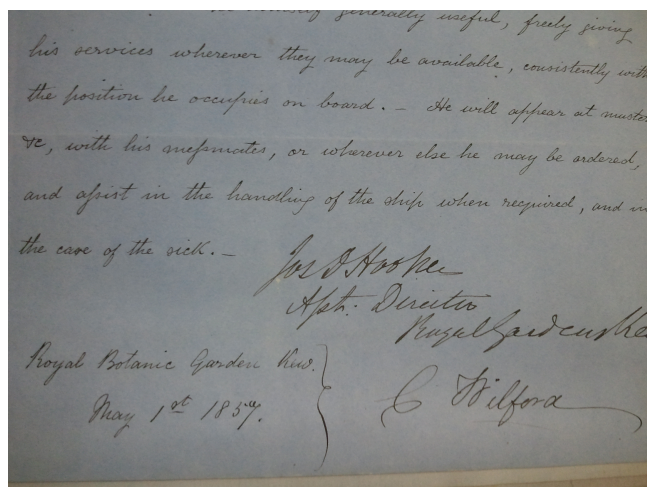 himself generally useful, freely giving
his services wherever they may be available, consistently with
the position he occupies on board. — He will appear at muster
&c, with his messmates, or wherever else he may be ordered,
and assist in the handling of the ship when required, and in
the care of the sick. —
Jos D Hooker
Asst. Director
Royal Gardens Ke
Royal Botanic Garden Kew.
May 1st 1857.
C Wilford